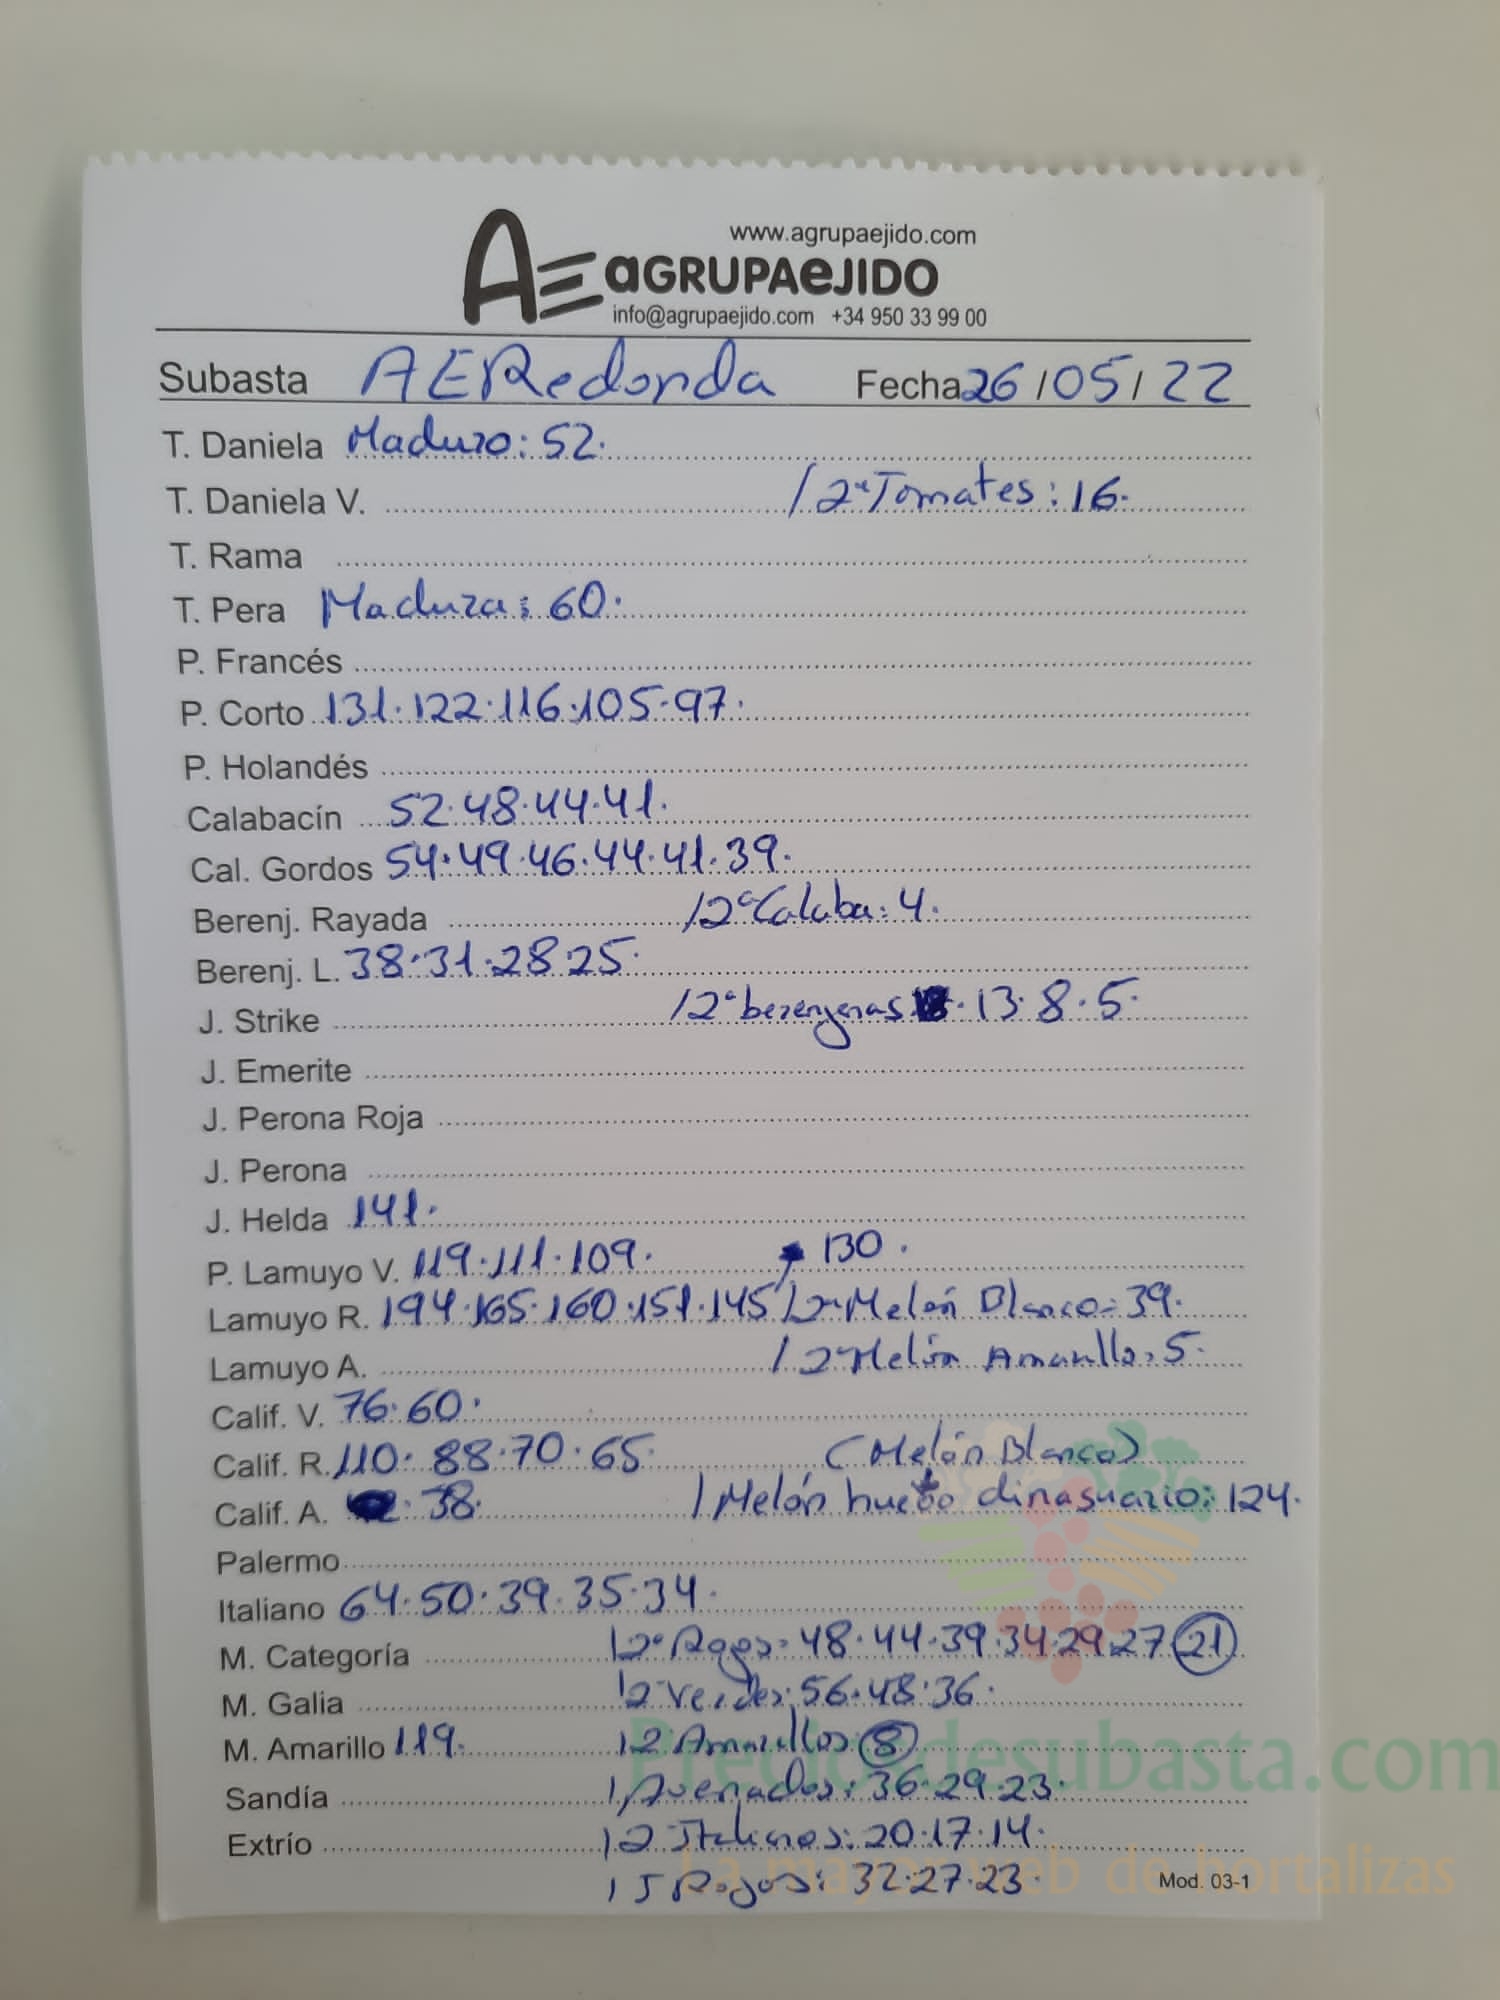 www.agrupaejido.com
AE AGRUPAEJIDO
info@agrupaejido.com +34 950 33 99 00
Subasta AERedonda Fecha 26/05/22
T. Daniela Maduro: 52.
T. Daniela V. /2ª Tomates: 16.
T. Rama
T. Pera Madura: 60.
P. Francés
P. Corto 131.122.116.105.97.
P. Holandés
Calabacín 52.48.44.41.
Cal. Gordos 54.49.46.44.41.39.
Berenj. Rayada /2ª Calaba: 4.
Berenj. L. 38.31.28.25.
J. Strike /2ª berenjenas: 13.8.5.
J. Emerite
J. Perona Roja
J. Perona
J. Helda 141.
P. Lamuyo V. 119.111.109. 130.
Lamuyo R. 194.165.160.151.145 /2ª Melón Blanco: 39.
Lamuyo A. /2ª Melón Amarillo: 5.
Calif. V. 76.60.
Calif. R. 110.88.70.65. (Melón Blanco)
Calif. A. 38. /Melón dinasuario: 124.
Palermo
Italiano 64.50.39.35.34.
M. Categoría /2ª Rojos: 48.44.39.34.29.27 21
M. Galia /2 Verdes: 56.48.36.
M. Amarillo 119. /2 Amarillos 8
Sandía : 36.29.23.
Extrío /2 Italianos: 20.17.14.
/J Rojos: 32.27.23.
Mod. 03-1
Preciosdesubasta.com
La mayor web de hortalizas